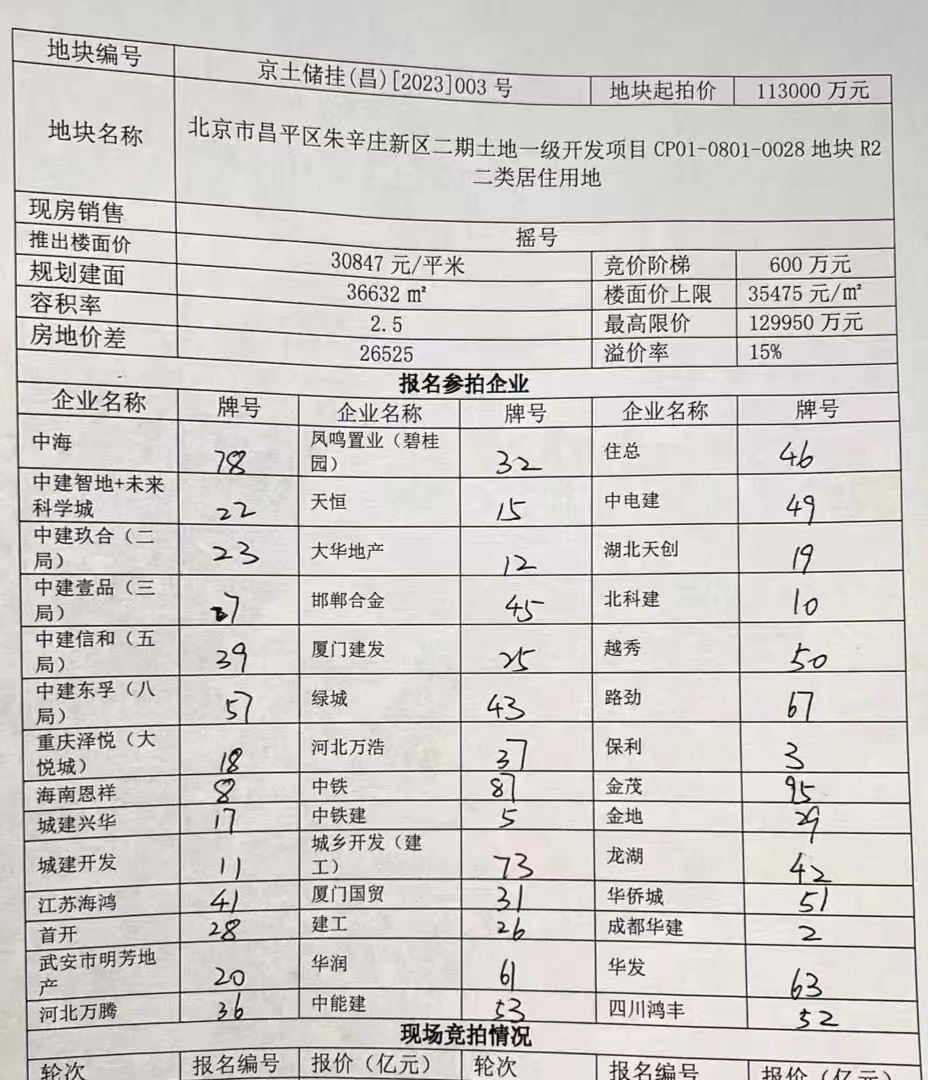 地块编号 京土储挂(昌)[2023]003 号 地块起拍价 113000 万元
地块名称 北京市昌平区朱辛庄新区二期土地一级开发项目 CP01-0801-0028 地块 R2
二类居住用地
现房销售
摇号
推出楼面价 30847 元/平米 竞价阶梯 600 万元
规划建面 36632 ㎡ 楼面价上限 35475 元/㎡
容积率 2.5 最高限价 129950 万元
房地价差 26525 溢价率 15%
报名参拍企业
企业名称 牌号 企业名称 牌号 企业名称 牌号
中海 78 凤鸣置业（碧桂
园） 32 住总 46
中建智地+未来
科学城 22 天恒 15 中电建 49
中建玖合（二
局） 23 大华地产 12 湖北天创 19
中建壹品（三
局） 7 邯郸合金 45 北科建 10
中建信和（五
局） 39 厦门建发 25 越秀 50
中建东孚（八
局） 57 绿城 43 路劲 67
重庆泽悦（大
悦城） 18 河北万浩 37 保利 3
海南恩祥 8 中铁 87 金茂 95
城建兴华 17 中铁建 5 金地 29
城建开发 11 城乡开发（建
工） 73 龙湖 42
江苏海鸿 41 厦门国贸 31 华侨城 51
首开 28 建工 26 成都华建 2
武安市明芳地
产 20 华润 61 华发 63
河北万腾 36 中能建 53 四川鸿丰 52
现场竞拍情况
轮次 报名编号 报价（亿元） 轮次 报名编号 报价（亿元）